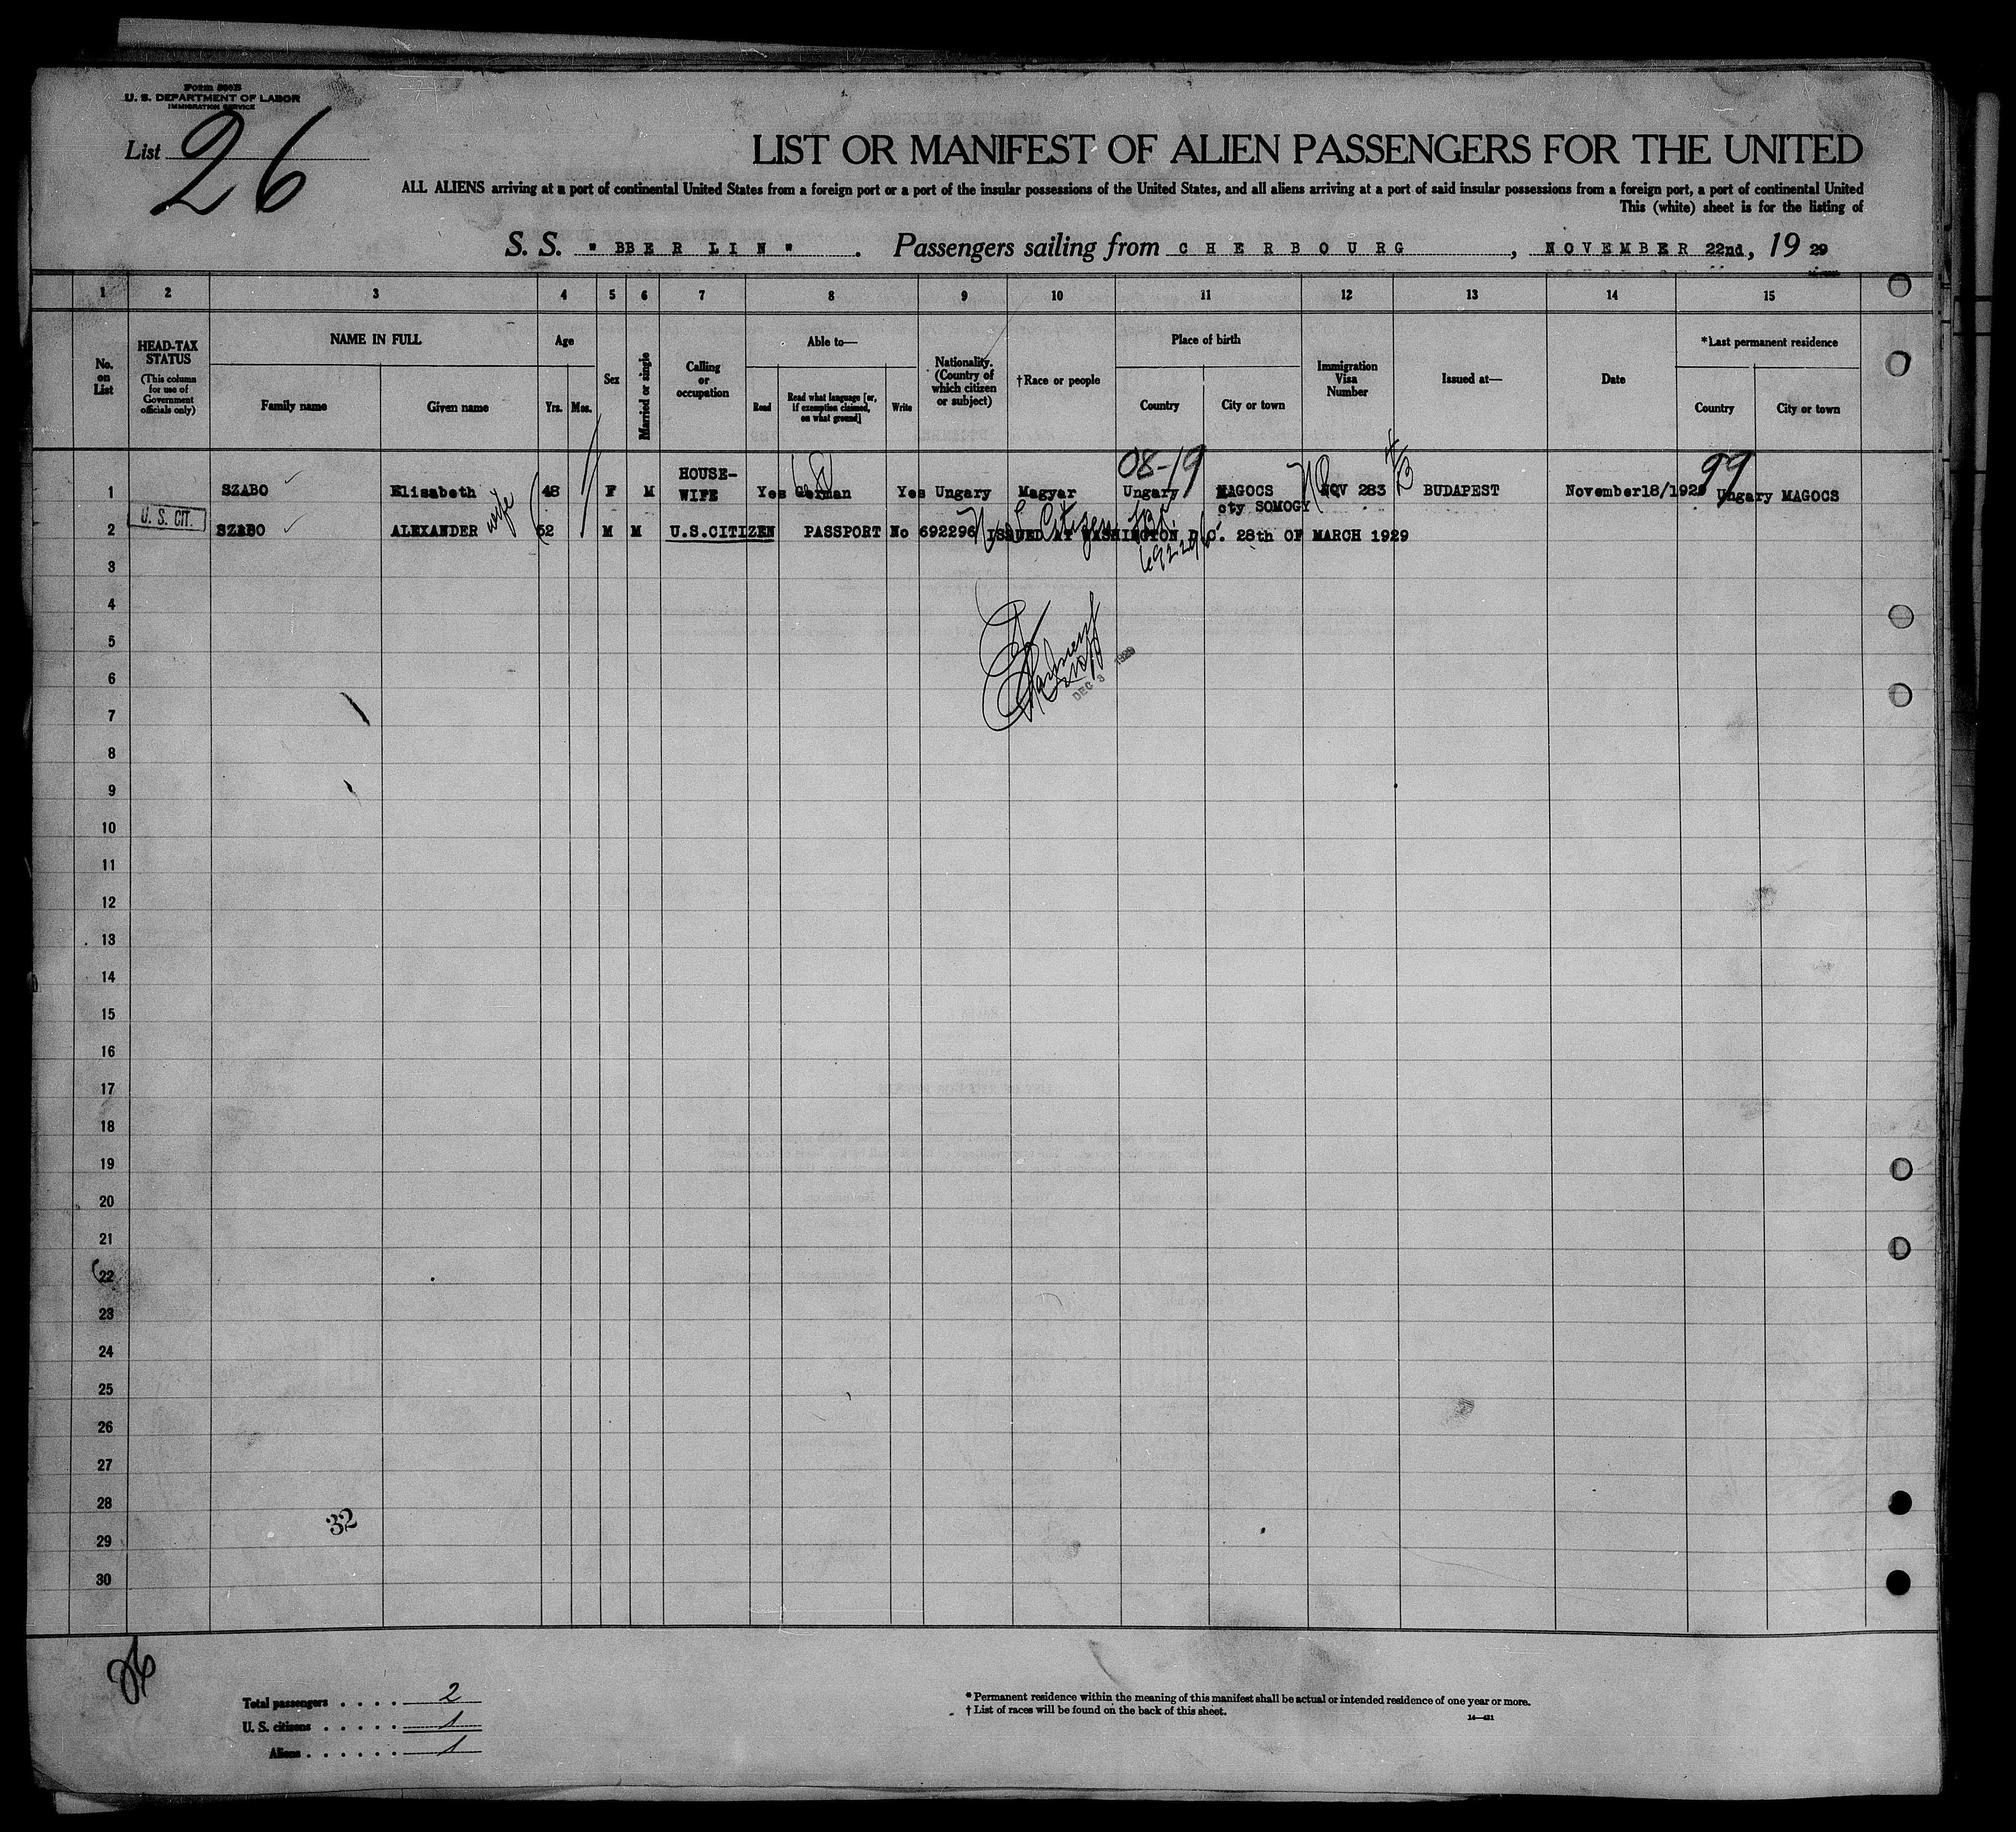 Form 500B
U. S. DEPARTMENT OF LABOR
IMMIGRATION SERVICE
List 26
LIST OR MANIFEST OF ALIEN PASSENGERS FOR THE UNITED
ALL ALIENS arriving at a port of continental United States from a foreign port or a port of the insular possessions of the United States, and all aliens arriving at a port of said insular possessions from a foreign port, a port of continental United
This (white) sheet is for the listing of
S. S. " BBER LIN ". Passengers sailing from CHERBOURG, NOVEMBER 22nd, 19 29
1 2 3 4 5 6 7 8 9 10 11 12 13 14 15
No. on List
HEAD-TAX STATUS
(This column for use of Government officials only)
NAME IN FULL
Family name
Given name
Age
Yrs. Mos.
Sex
Married or single
Calling or occupation
Able to—
Read
Read what language [or, if exemption claimed, on what ground]
Write
Nationality. (Country of which citizen or subject)
†Race or people
Place of birth
Country
City or town
Immigration Visa Number
Issued at—
Date
*Last permanent residence
Country
City or town
08-19
99
1 SZABO Elisabeth wife 48 F M HOUSE-WIFE Yes German Yes Ungary Magyar Ungary MAGOCS cty SOMOGY NQV 283 BUDAPEST November18/1929 Ungary MAGOCS
U. S. CIT.
2 SZABO ALEXANDER 52 M M U.S.CITIZEN PASSPORT No 692296 ISSUED AT WASHINGTON D.C. 28th OF MARCH 1929
U S Citizen
692296
3
4
5
6
DEC 3 1929
7
8
9
10
11
12
13
14
15
16
17
18
19
20
21
22
23
24
25
26
27
28
32
29
30
26
Total passengers . . . . 2
U. S. citizens . . . . . 1
Aliens . . . . . . 1
* Permanent residence within the meaning of this manifest shall be actual or intended residence of one year or more.
† List of races will be found on the back of this sheet.
14—421